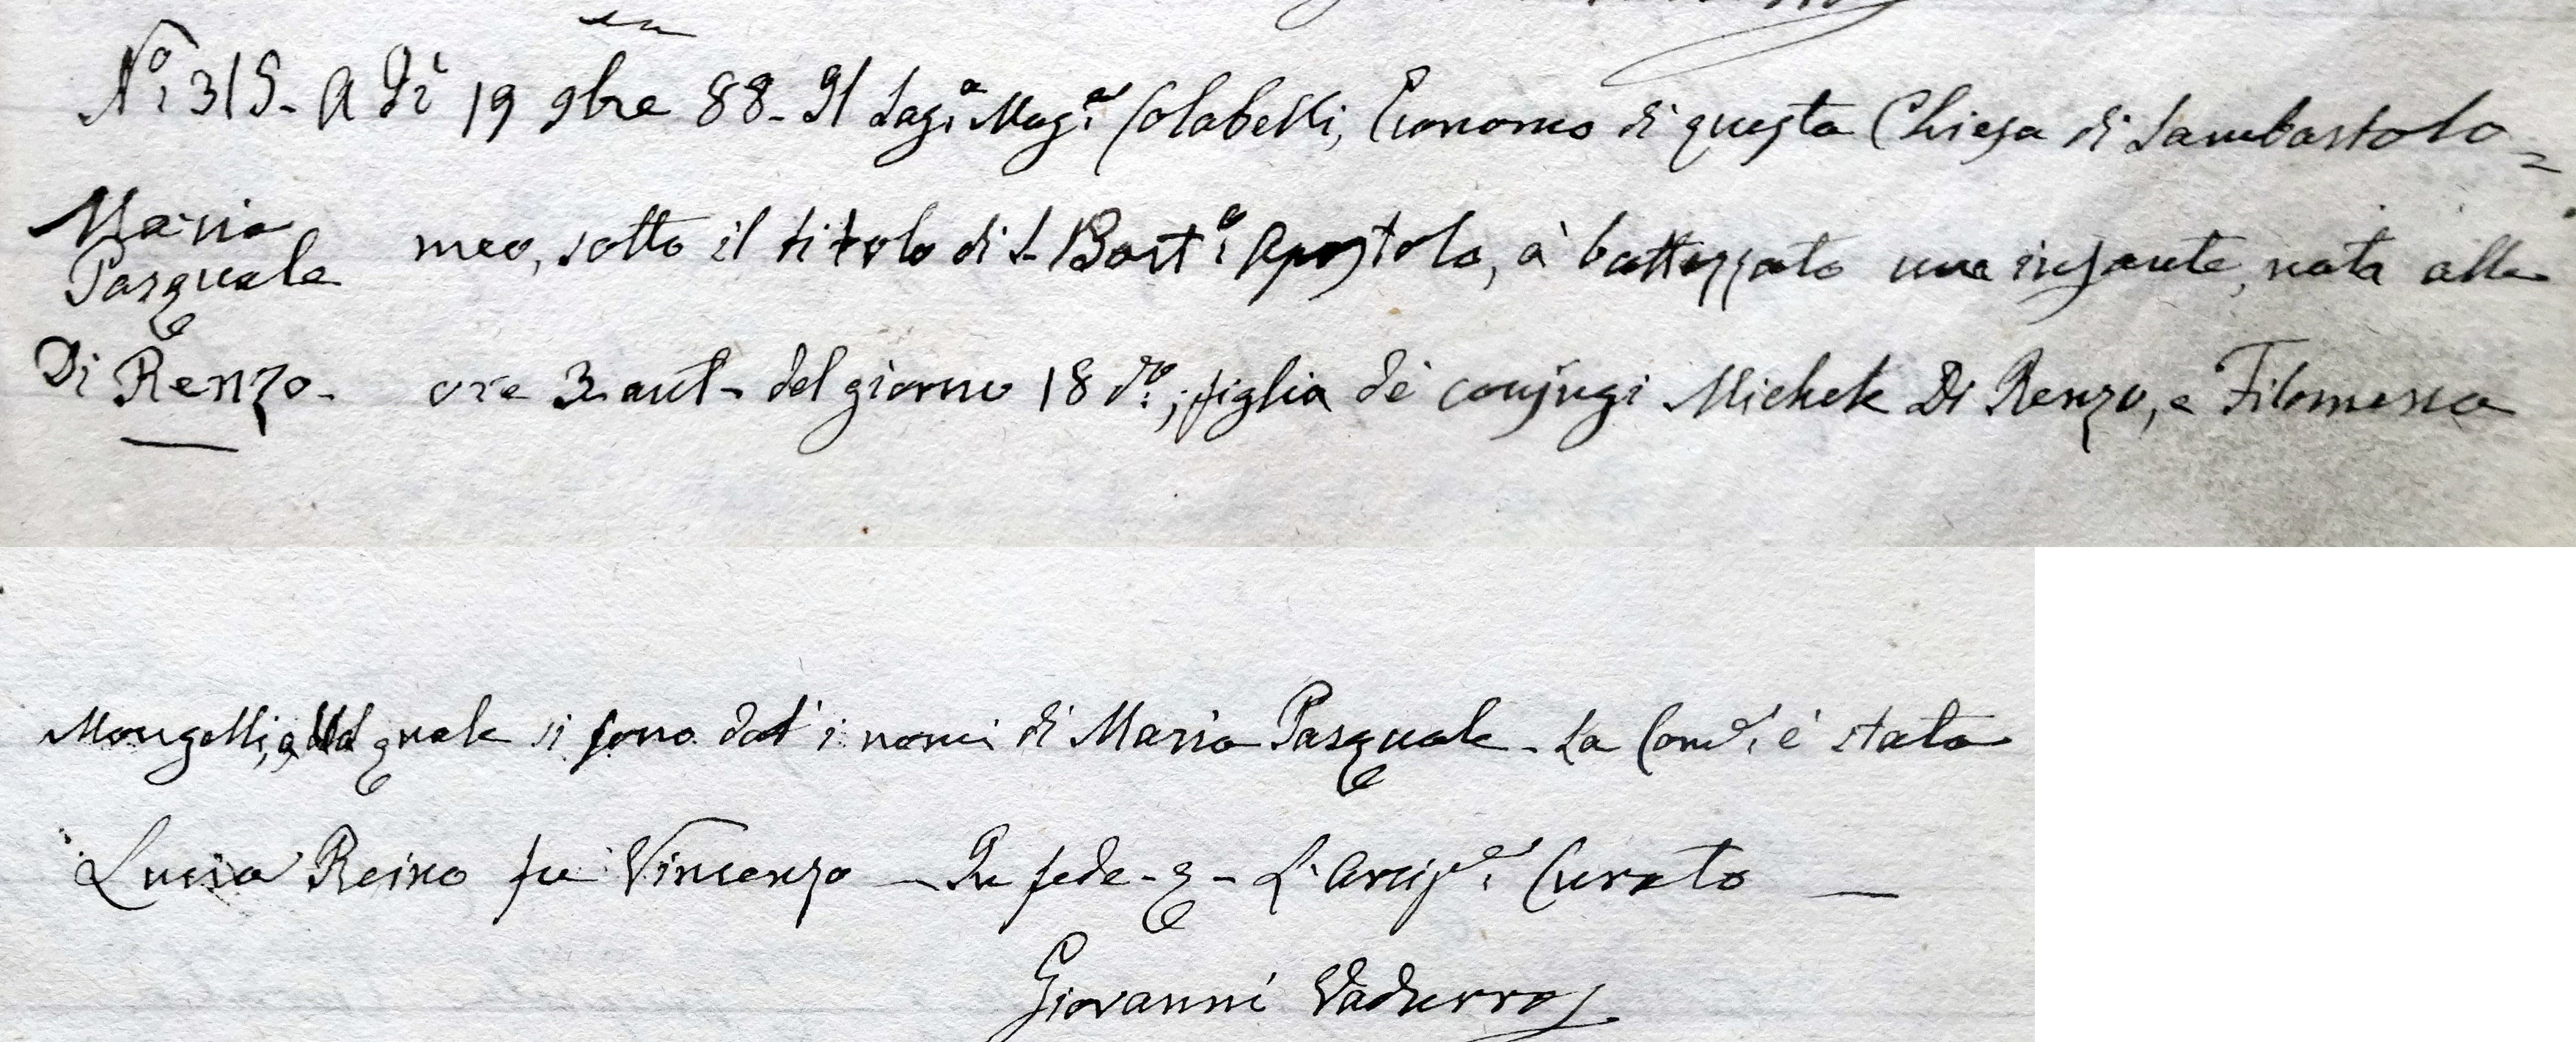 Nº. 315 - A Dì 19 9bre 88 - Il Sag.e Mag.e Colabelli, Economo di questa Chiesa di Sambartolo=
Maria
Pasquale
meo, sotto il titolo di S. Bart.o Apostolo, à battezzato una infante, nata alle
Di Renzo -
ore 3 ant - del giorno 18 d.o; figlia de' conjugi Michele Di Renzo, e Filomena
Mongelli, alla quale si sono dat' i nomi di Maria Pasquale - La Com.e è stata
Lucia Reino fu Vincenzo - In fede - L'Arcip.e Curato -
Giovanni Vadurro